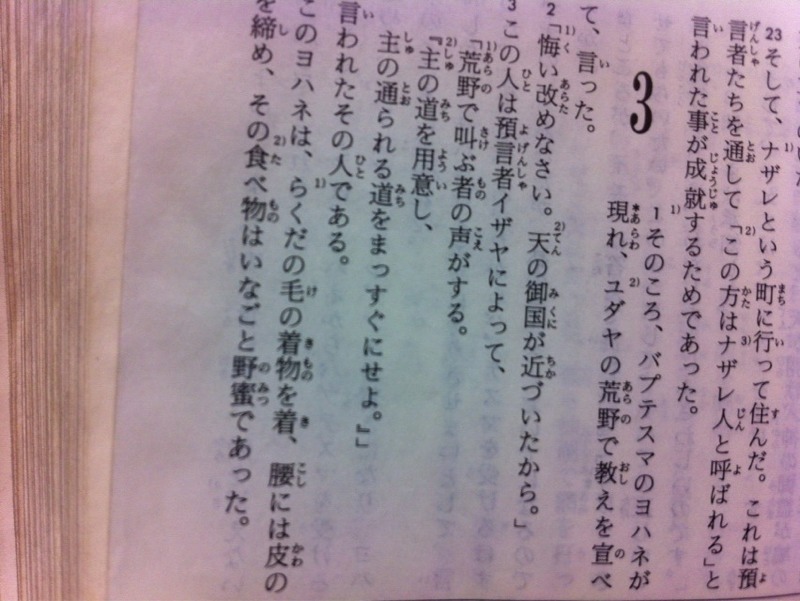 23 そして、ナザレという町に行って住んだ。これは預
言者たちを通して「この方はナザレ人と呼ばれる」と
言われた事が成就するためであった。
3
1 そのころ、バプテスマのヨハネが
現れ、ユダヤの荒野で教えを宣べ
て、言った。
2 「悔い改めなさい。天の御国が近づいたから。」
3 この人は預言者イザヤによって、
「荒野で叫ぶ者の声がする。
『主の道を用意し、
主の通られる道をまっすぐにせよ。』」
言われたその人である。
このヨハネは、らくだの毛の着物を着、腰には皮の
を締め、その食べ物はいなごと野蜜であった。